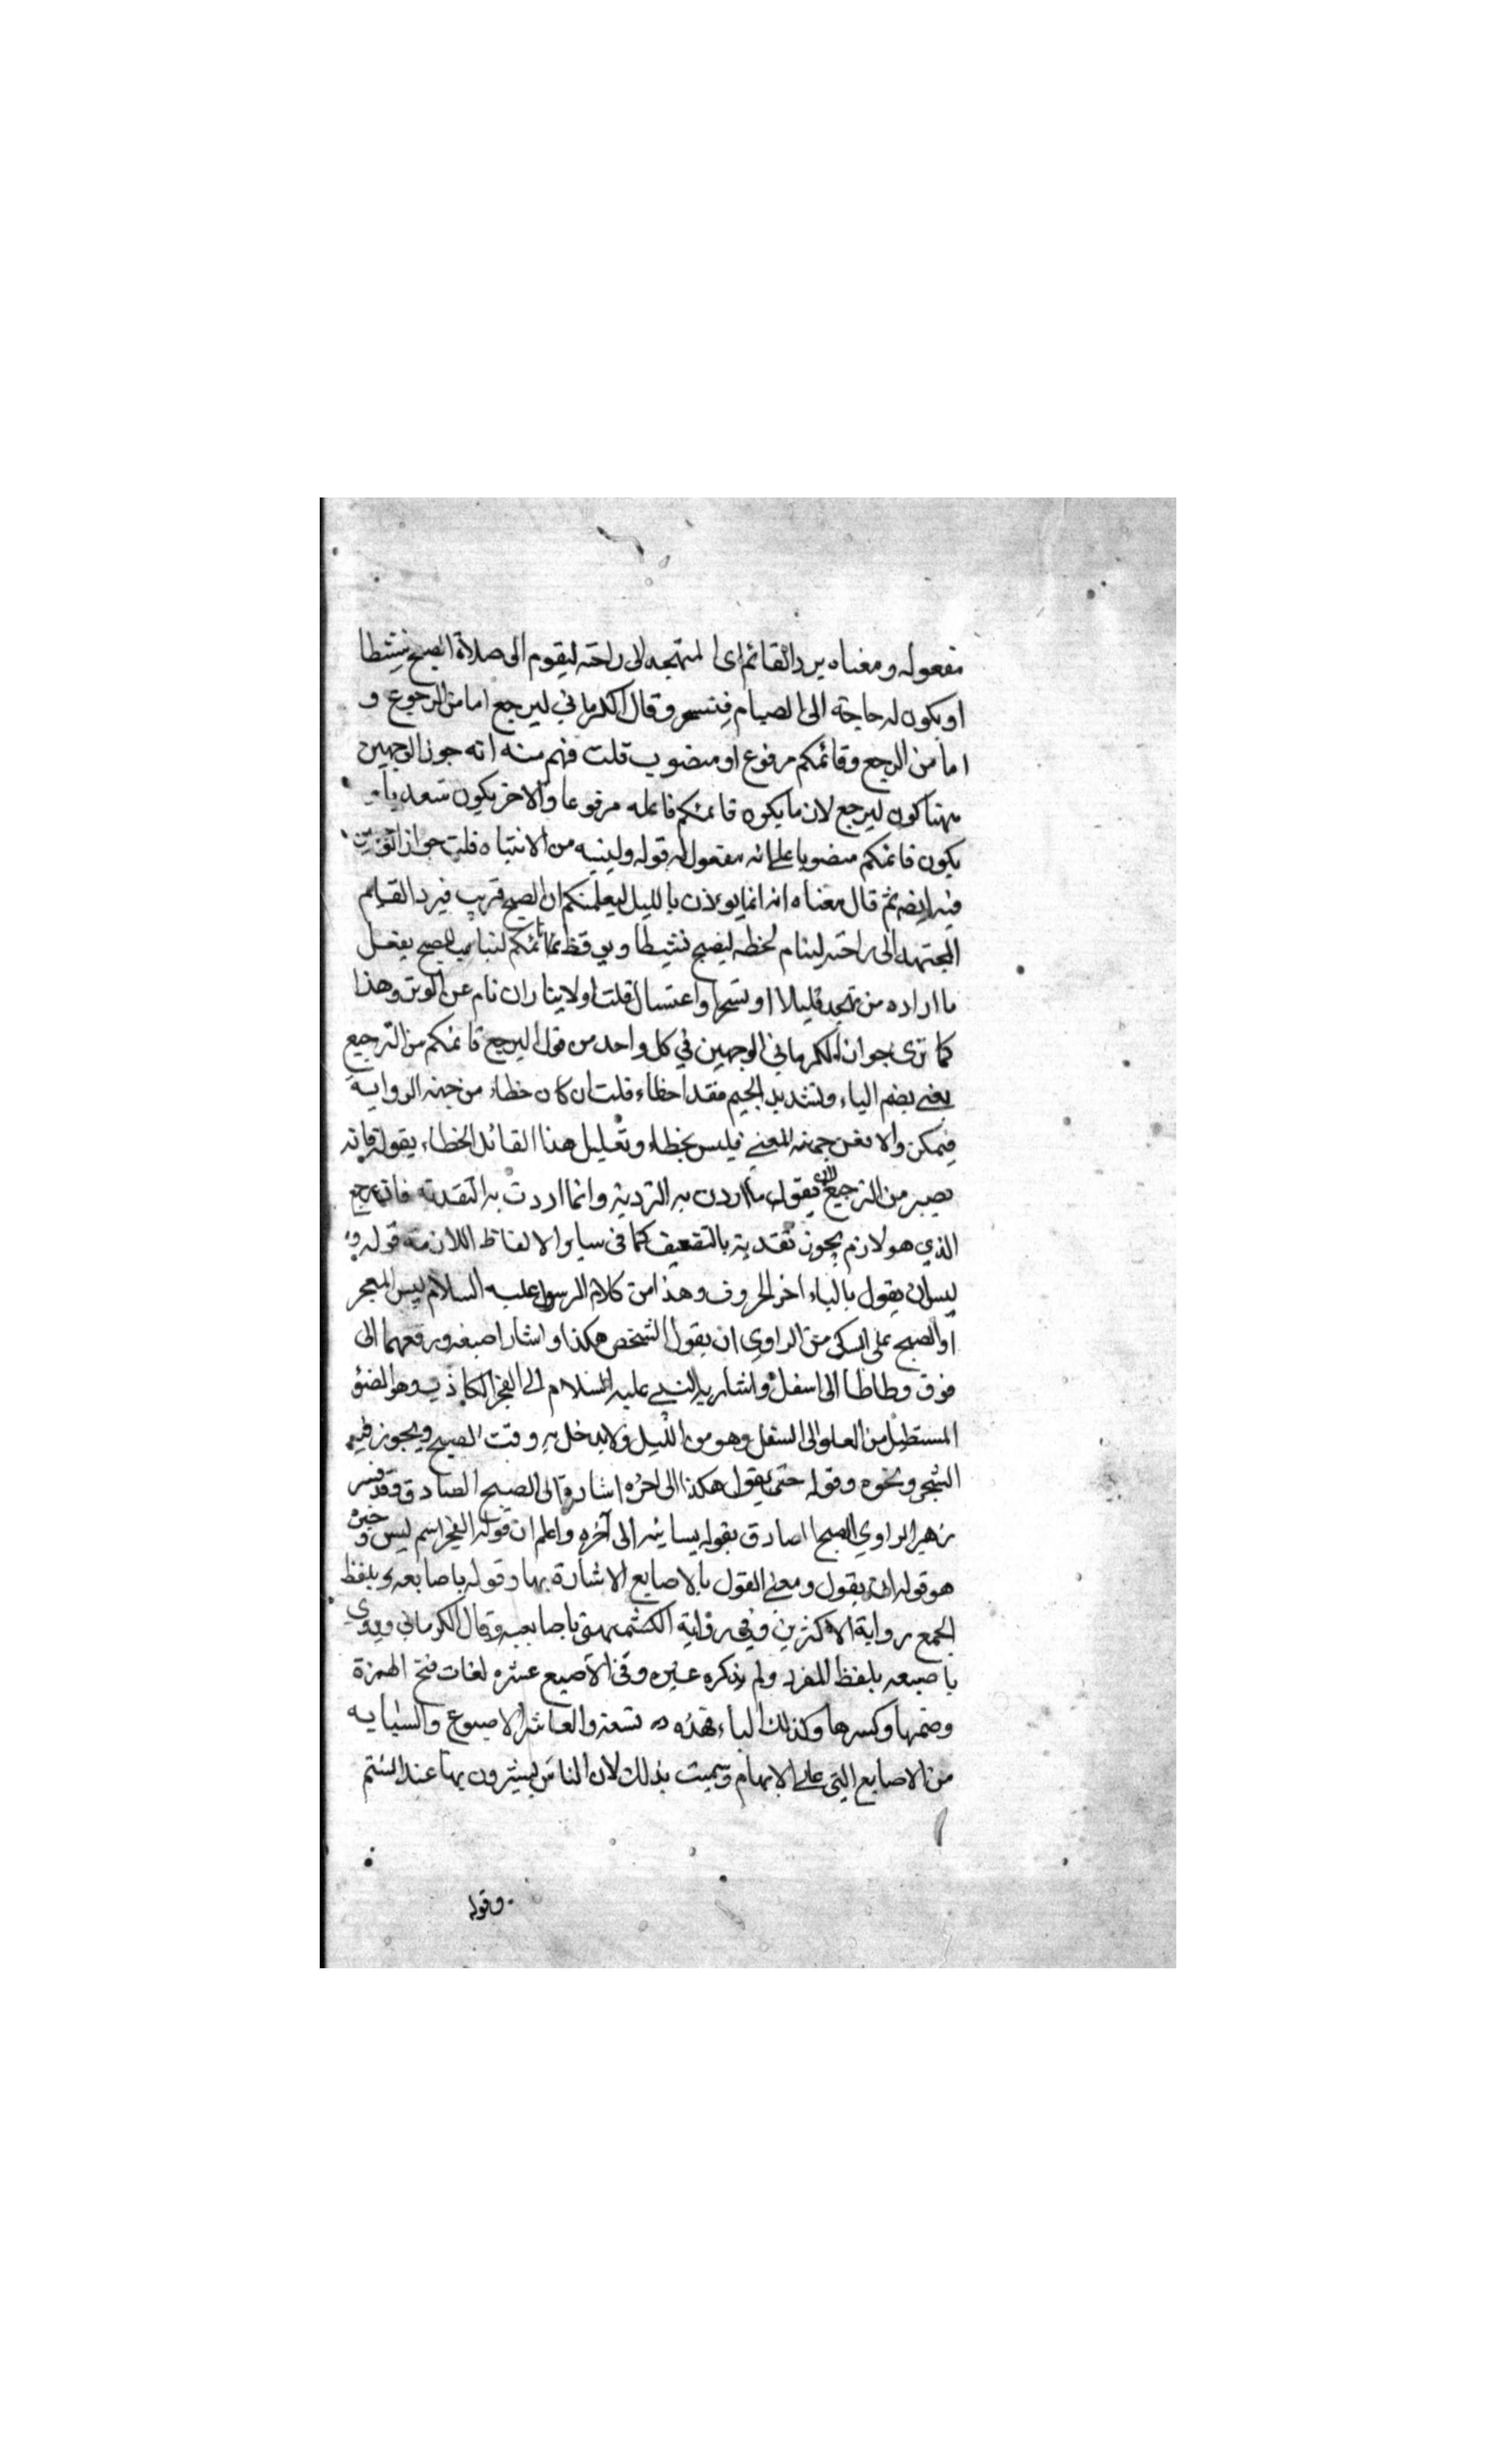 مفعوله ومعناه يرد القائم اى المتهجد الى راحته ليقوم الى صلاة الصبح نشيطا
او يكون له حاجة الى الصيام فيتسحر وقال الكرماني ليرجع اما من الرجوع و
اما من الرجع وقائمكم مرفوع او منصوب قلت فهم منه انه جوز الوجهين
ههنا كون ليرجع لازما يكون قائمكم فاعله مرفوعا والاخر يكون متعديا و
يكون قائمكم منصوبا على انه مفعول له قوله ولينبه من الانتباه قلت جواز الوجهين
فيه ايضا ثم قال معناه انه انما يوءذن بالليل ليعلمكم ان الصبح قريب فيرد القائم
المجتهد الى راحته لينام لحظه ليصبح نشيطا ويوقظ نائمكم لتباهب للصبح بفعل
ما اراده من تهجد قليلا او تسحر او اغتسال قلت اولايتار ان نام عن الوتر وهذا
كما ترى جواز الكرماني الوجهين في كل واحد من قوله ليرجع قائمكم من الترجيع
يعني بضم الياء وتشديد الجيم فقد اخطاء قلت ان كان خطاء من جهة الرواية
فيمكن والا فمن جهة المعنى فليس بخطاء وتعليل هذا القائل الخطاء بقوله فانه
يصير من الترجيع يقول ما اردت به الترديد وانما اردت به التعدية فانه رجع
الذي هو لازم يجوز تعديته بالتضعيف كما في ساير الالفاظ اللازمة قوله و
ليس ان يقول بالياء اخر الحروف وهذا من كلام الرسول عليه السلام ليس الفجر
او الصبح على الشك من الراوي ان يقول الشخص هكذا واشار اصبعه ورفعهما الى
فوق وطاطا الى اسفل واشار به النبي عليه السلام الى الفجر الكاذب وهو الضوء
المستطيل من العلو الى السفل وهو من الليل ولايدخل به وقت الصبح ويجوز فيه
التسحر ونحوه وقوله حتى يقول هكذا الى اخره اشارة الى الصبح الصادق وقد فسر
زهير الراوي الصبح الصادق بقوله بسبابتيه الى آخره واعلم ان قوله الفجر اسم ليس وخبره
هو قوله ان يقول ومعنى القول بالاصابع الاشارة بها وقوله باصابعه وبلفظ
الجمع رواية الاكثرين وفي رواية الكشميهني باصابعيه وقال الكرماني وروي
باصبعه بلفظ المفرد ولم يذكره غيره وفي الاصبع عشره لغات فتح الهمزة
وضمها وكسرها وكذلك الباء فهذه تسعة والعاشر الاصبوع والسبابه
من الاصابع التي على الابهام وسميت بذلك لان الناس يشيرون بها عند الشتم
وقوله